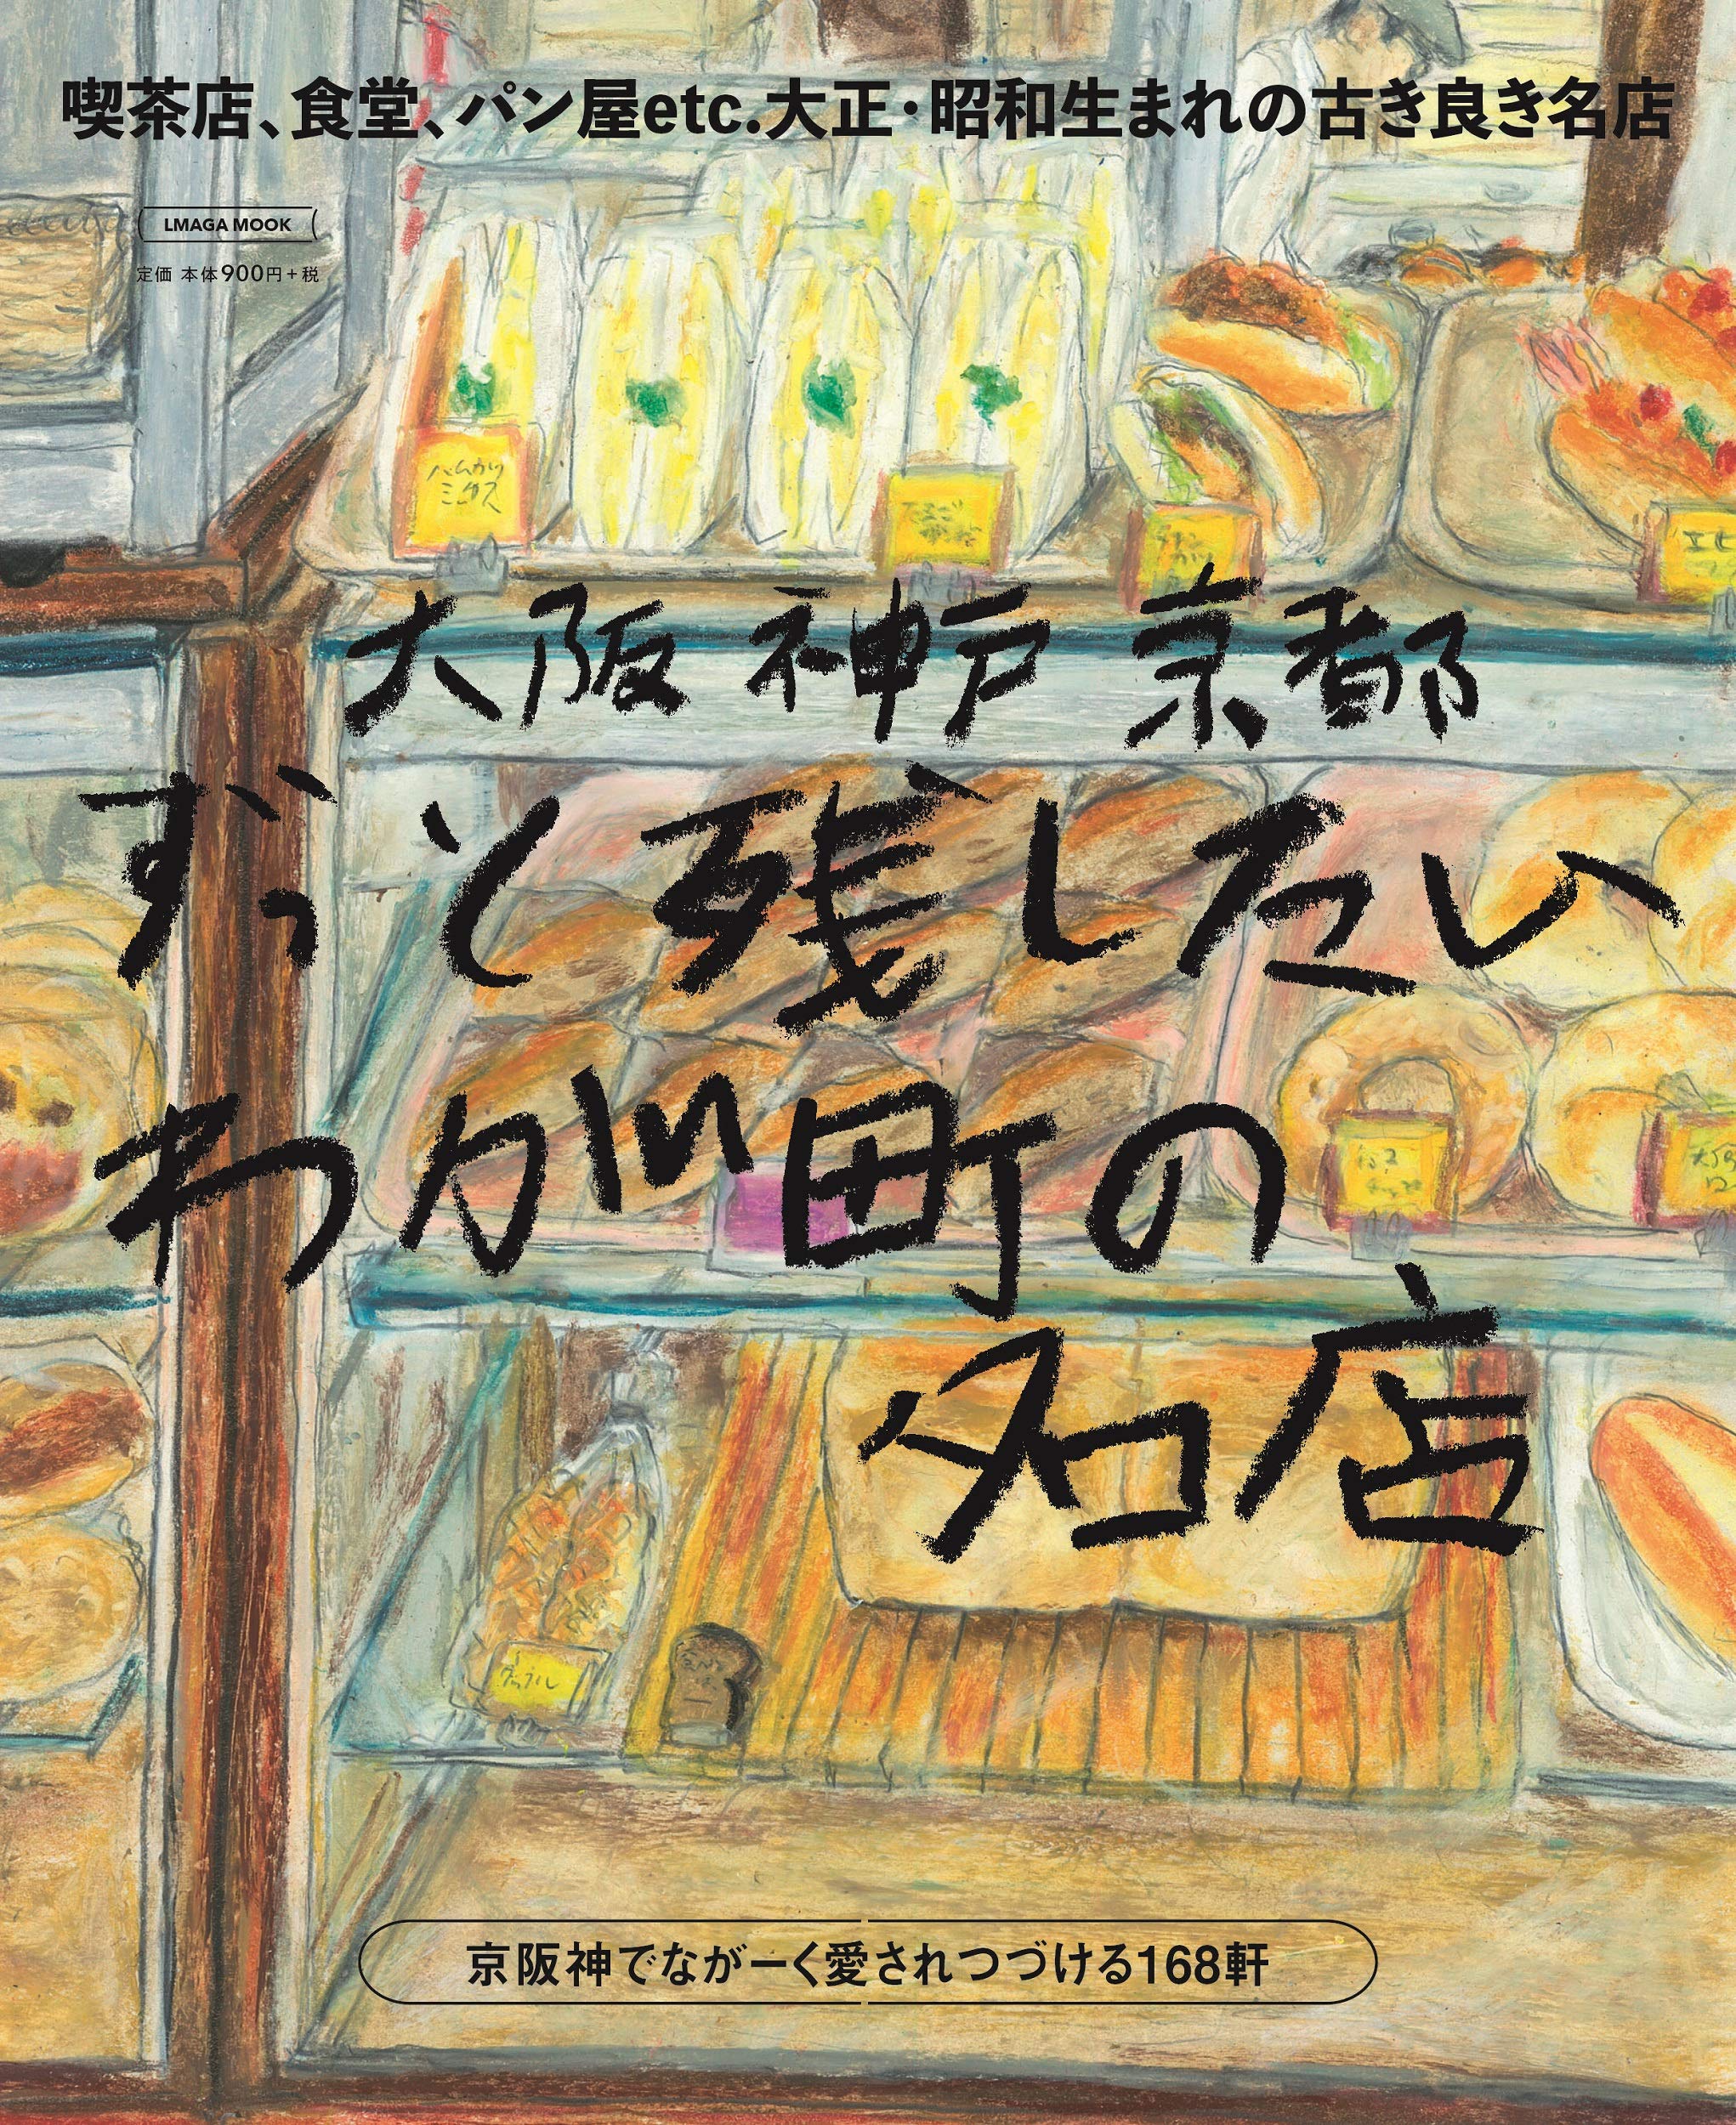 喫茶店、食堂、パン屋etc.大正・昭和生まれの古き良き名店
LMAGA MOOK
定価 本体900円+税
ハムカツ
ミックス
大阪 神戸 京都
ずっと残したい
わが町の
名店
京阪神でながーく愛されつづける168軒